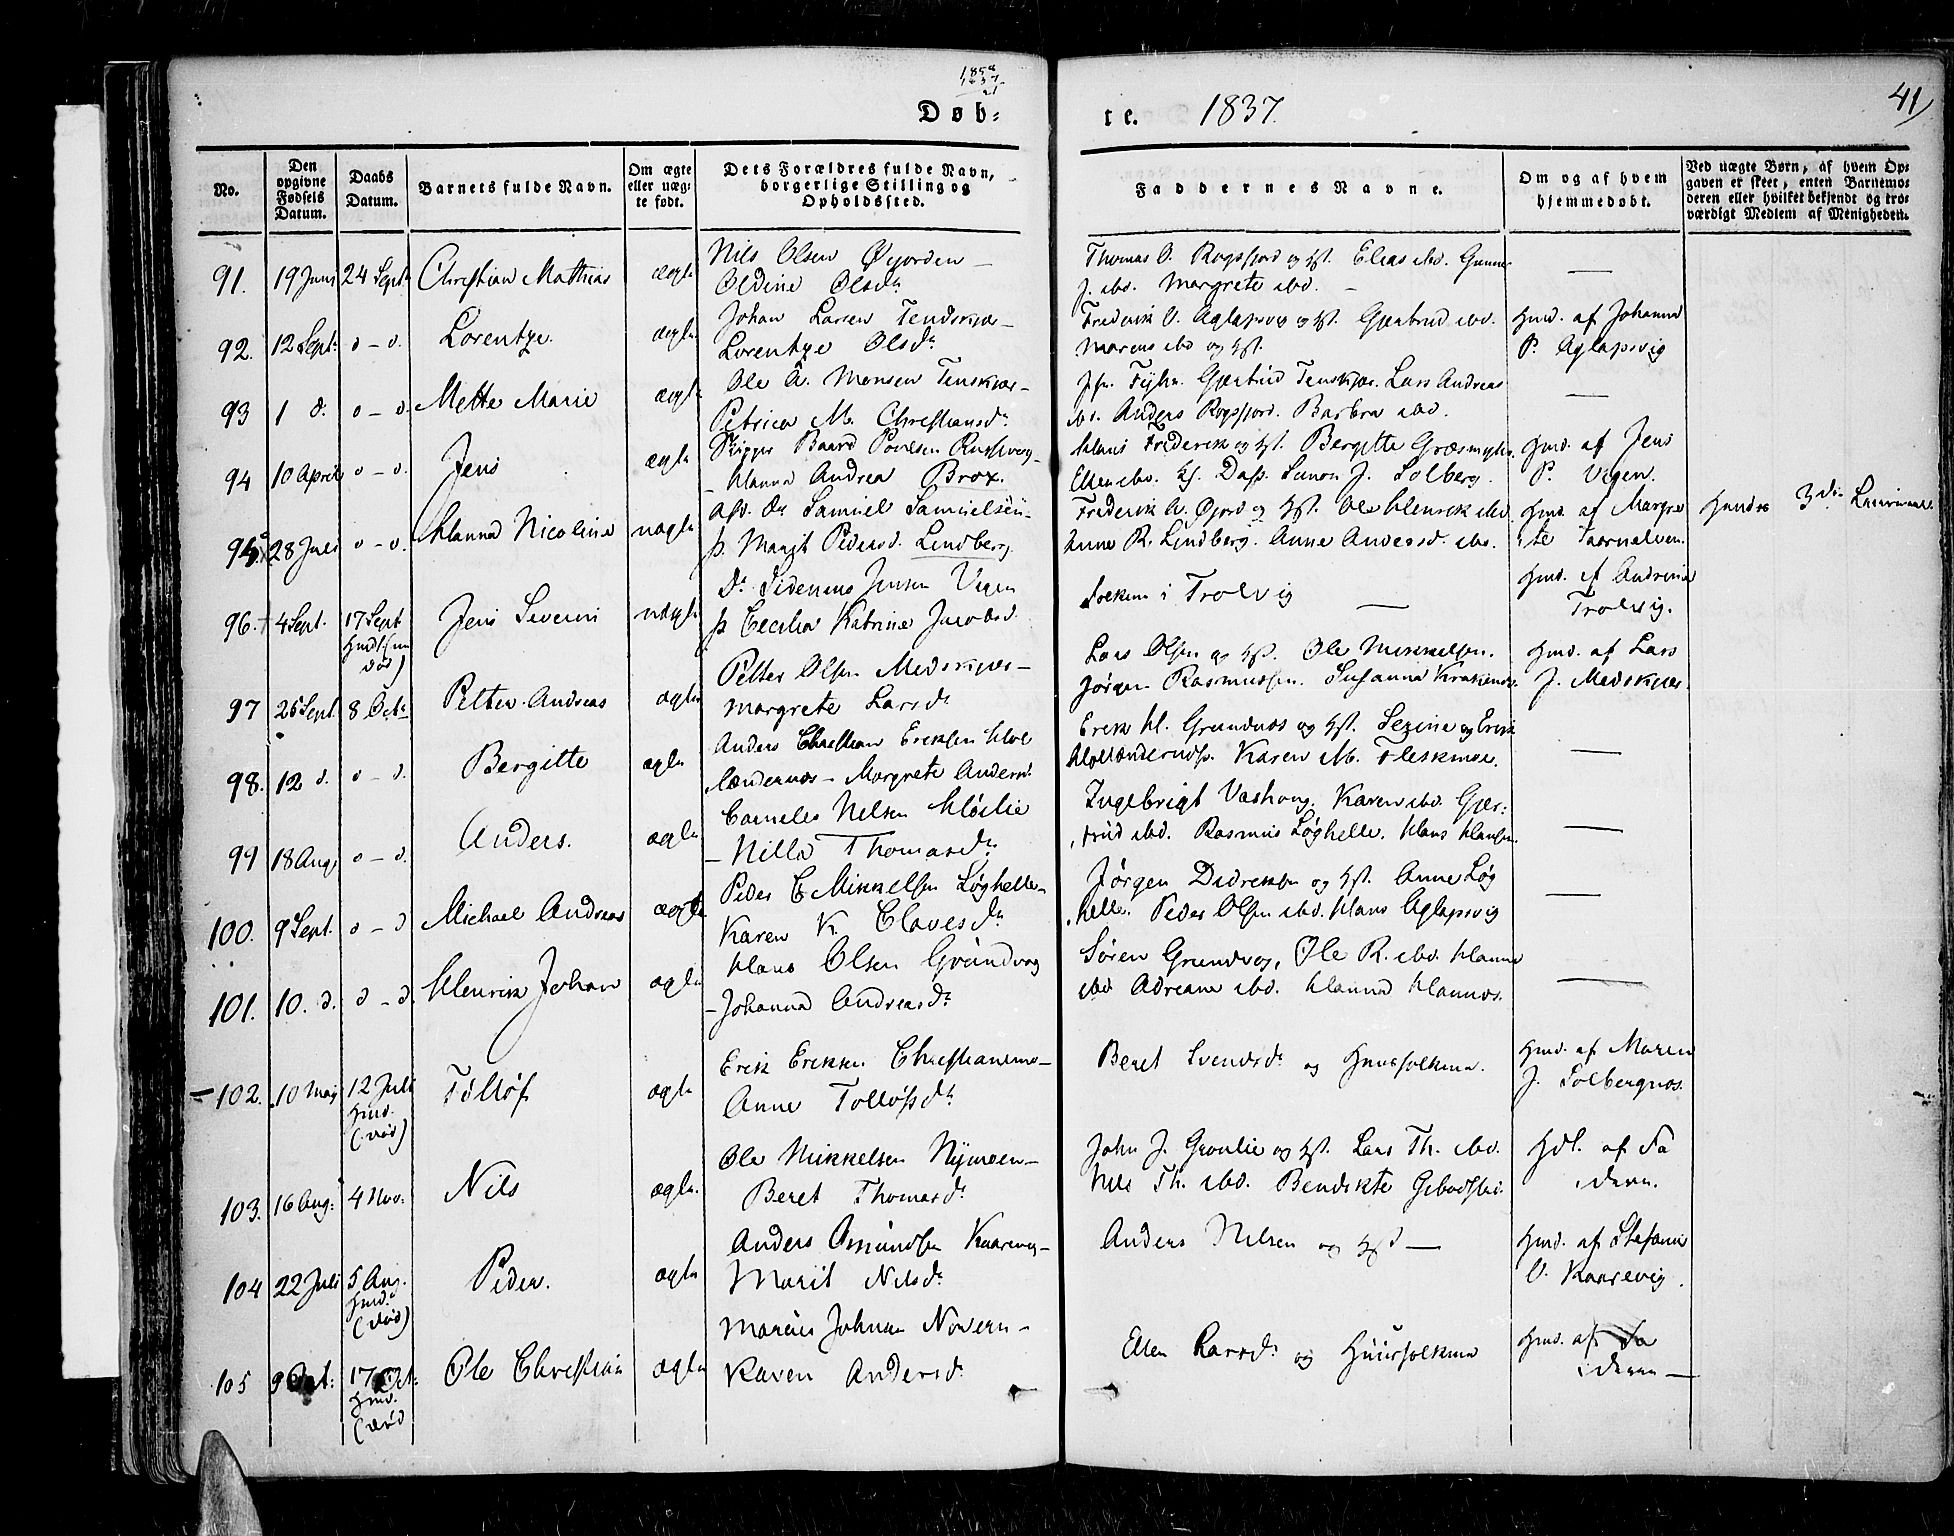 1858
1837
21
Døb-
te. 1837.
41
No.
Den opgivne Fødsels Datum.
Daabs Datum.
Barnets fulde Navn.
Om ægte eller uæg- te født.
Dets Forældres fulde Navn, borgerlige Stilling og Opholdssted.
Faddernes Navne.
Om og af hvem hjemmedøbt.
Ved uægte Børn, af hvem Op- gaven er skeet, enten Barnemo- deren eller hvilket bekjendt og tro- værdigt Medlem af Menigheden.
91. 19 Juni 24 Sept. Christian Mathias ægte Nils Olsen Øyjorden —
Oldine Olsdr
Thomas O. Rogsfjord og Hst. Elias ibd. Gunner
J. ibd. Margrete ibd. —
92. 12 Sept: d — d. Lorentze. ægte Johan Larsen Tendskjær —
Lorentze Olsdr
Frederik O. Aglapsvig og Hst. Gjertrud ibd.
Marens ibd og Hst.
Hmd. af Johanna
P. Aglapsvig
93 1 d. d — d. Mette Marie ægte Ole A. Monsen Tenskjær —
Petrica M. Christiansdr
Jfr. Fyhn. Gjertrud Tenskjær. Lars Andreas
ibd. Anders Rogsfjord. Barbra ibd.
94 10 April d — d. Jens ægte Skipper Baard Povelsen
— Hanna Andrea Brox.
Hans Frederik og Hst. Bergitte Græsmyhr.
Ellen ibd. J. Solberg.
Hmd. af Jens
P. Vigen.
95 28 Juli d — d. Hanna Nicoline uægte Samuel Samuelsen —
p. Marit Pedersd. Lindberg
Frederik A. Øjord og Hst. Ole Henrik ibd
Anne R. Lindberg. Anne Andersd. ibd.
Hmd. af Margre
te Taarnelven.
3die
96. 4 Sept. 17 Sept Jens Severin uægte Sidenius Jensen Vigen
p. Cecilia Katrine Jacobsd.
Folkene i Trolvig —
Hmd. af Andrine
Trolvig.
97 26 Sept. 8 Octr Petter Andreas ægte Petter Olsen Medskjær —
Margrete Larsdr
Lars Olsen og Hst. Ole Mikkelsen.
Jørgen Rasmussen. Susanna
Hmd. af Lars
J. Medskjær.
98. 12 d. d — d. Bergitte ægte Anders Christian Eriksen Hol
lændernæs — Margrete Andersd.
Erik H. Grundnæs og Hst. Sezine og Erik
Hollændernæs. Karen M. Fleskmoe.
99 18 Aug d — d. Anders. ægte Corneles Nilsen Høilie
— Nilla Thomasdr
Ingebrigt Vashoug. Karen ibd. Gjer:
trud ibd. Rasmus Løghelle. Hans Hansen.
100. 9 Sept. d — d Michael Andreas ægte Peder C. Mikkelsen Løghelle —
Karen K. Clavesdr
Jørgen Didriksen og Hst. Anne Løg
helle. Peder Olsen ibd. Hans Aglapsvig
101. 10. d. d — d. Henrik Johan ægte Hans Olsen Grundvog
— Johanna Andreasdr
Søren Grundvog, Ole R. ibd. Hanna
ibd Adriane ibd. Hanna Hannæs.
102. 10 Maj 12 Juli
Hmd.
(død) Tolløf ægte Erik Eriksen Christiansmo —
Anne Tolløfsdr
Beret Svendsdr og Huusfolkene.
Hmd. af Maren
J. Solbergnæs.
103. 16 Aug: 4 Nov: Nils ægte Ole Mikkelsen Nymoen —
Beret Thomasdr
John J. Gronlie og Hst. Lars Th. ibd.
Nils Th. ibd. Bendikte
Hdt. af Fa
deren.
104 22 Juli 5 Aug.
Hmd.
(død) Peder. ægte Anders Amundsen Kaarevog —
Marit Nilsdr
Anders Nilsen og Hst —
Hmd. af Stefanus
O. Kaarevig.
105 9 Oct: 17 Oct:
Hmd.
(død Ole Christian ægte Marius Johnsen —
Karen Andersdr
Ellen Larsdr og Huusfolkene
Hmd. af Fa
deren —